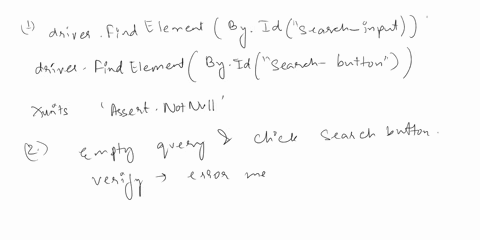 (1) driver.Find Element (By.Id("Search-input"))
driver.Find Element (By.Id("Search-button"))
Xunits 'Assert.NotNull'
(2.) Empty query & click search button.
verify → error me